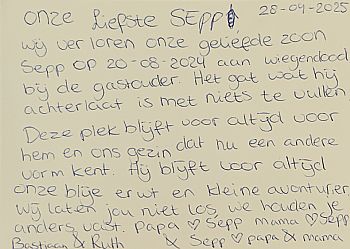 onze liefste SEPP 28-04-2025
wij verloren onze geliefde zoon
Sepp op 20-08-2024 aan wiegendood
bij de gastouder. Het gat wat hij
achterlaat is met niets te vullen
Deze plek blijft voor altijd voor
hem en ons gezin dat nu een andere
vorm kent. Hij blijft voor altijd
onze blije erwt en kleine avonturier
wij laten jou niet los, we houden je
anders vast. Papa ♡ Sepp mama ♡ Sepp
Bastiaan & Ruth X Sepp ♡ papa & mama